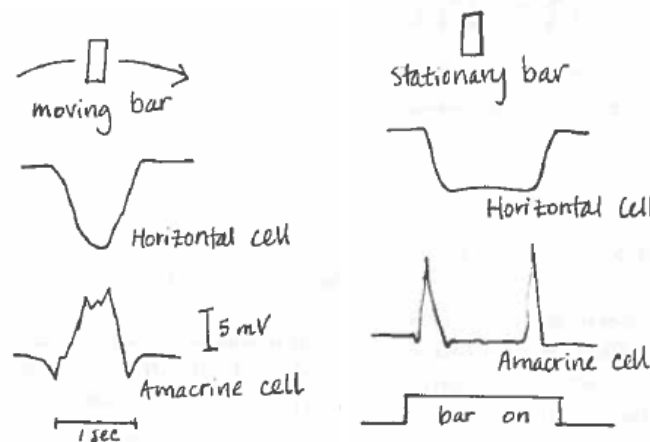 moving bar
Horizontal cell
5 mV
Amacrine cell
1 sec
stationary bar
Horizontal cell
Amacrine cell
bar on